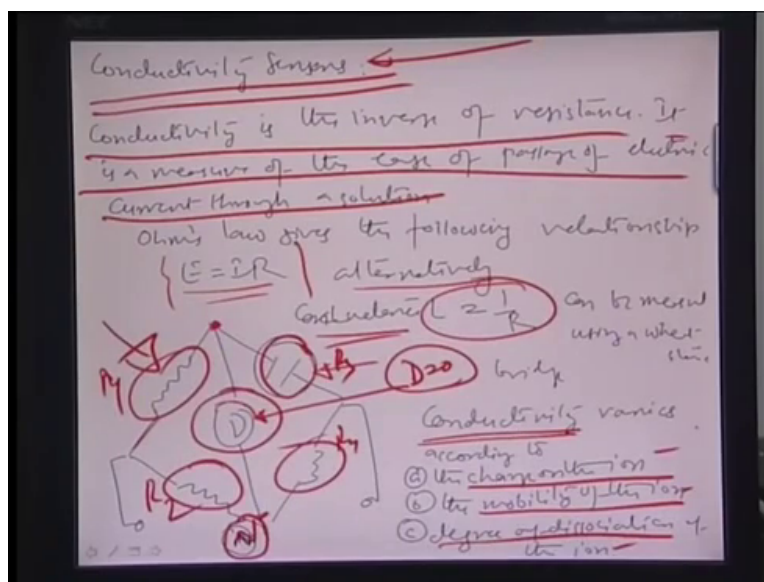 Conductivity Sensors.
Conductivity is the inverse of resistance. It
is a measure of the ease of passage of electric
Current through a solution
Ohm's law gives the following relationship
E = IR alternatively
Conductance L = 1/R can be
using a wheat-
stone
bridge
D=0
D
Conductivity varies
according to
(a) the charge on the ion
(b) the mobility of the ion
(c) degree of dissociation of
the ion